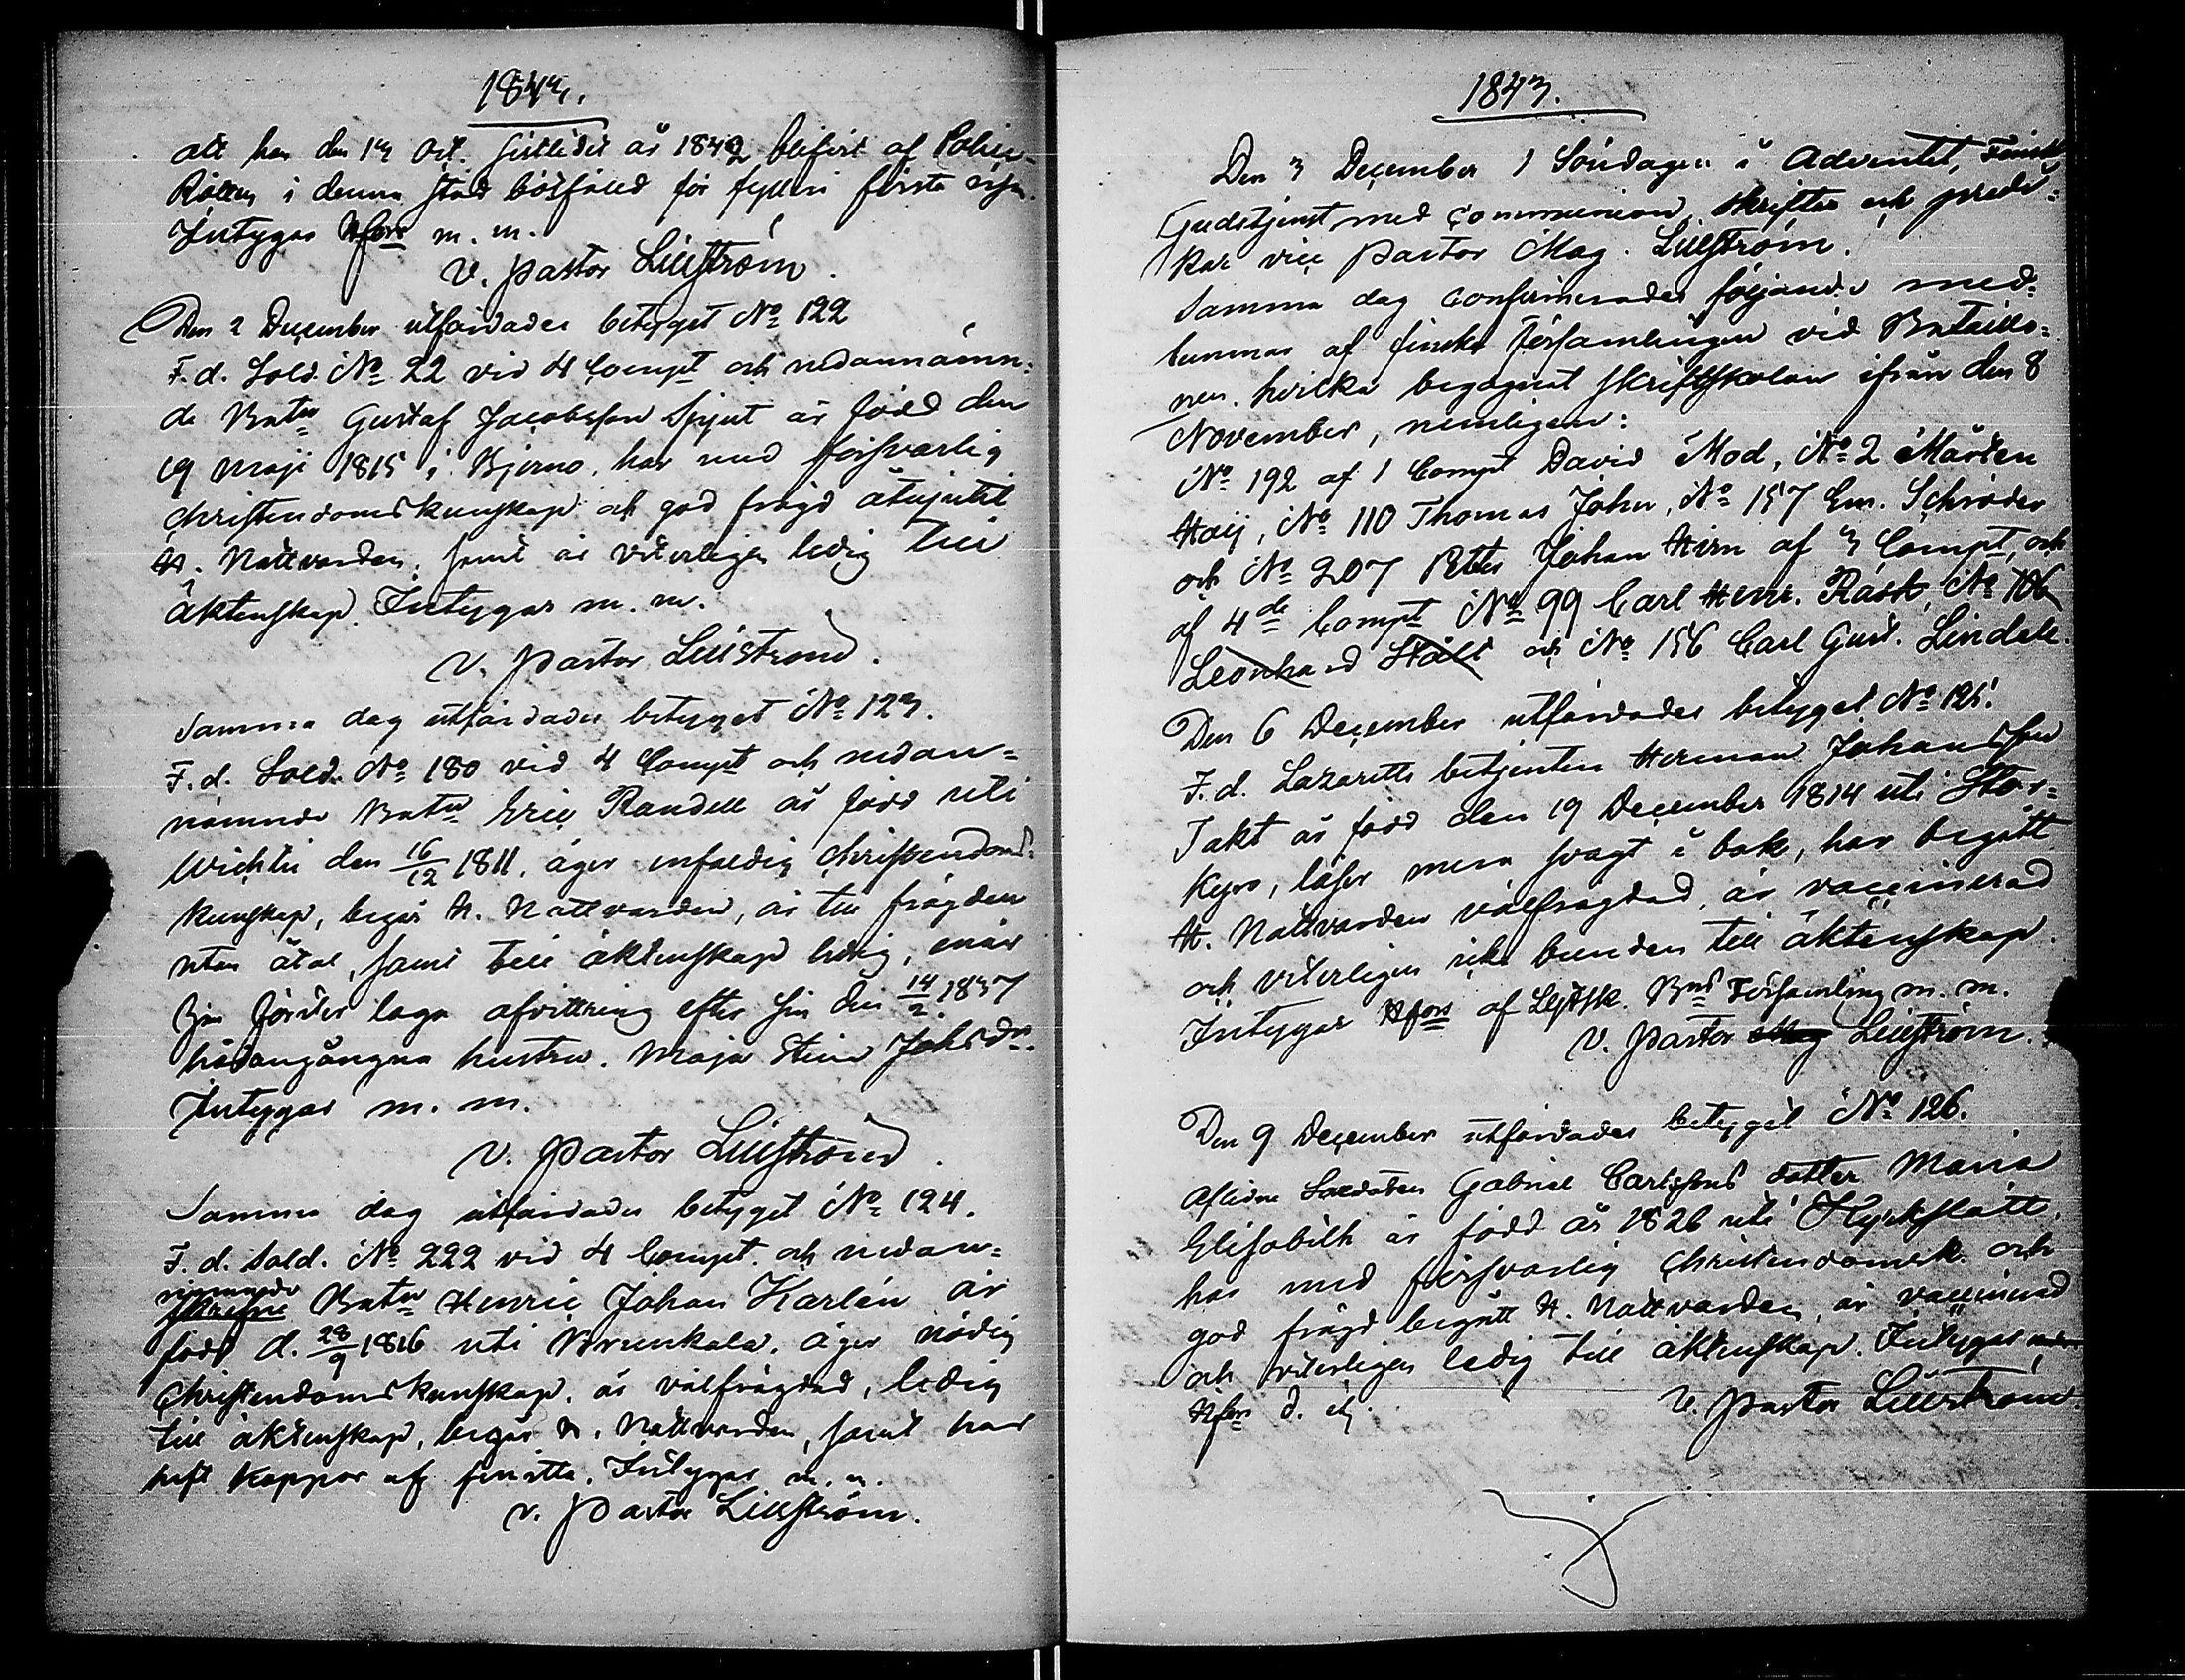 1843.
att han den 13 Oct. sistledit år 1842 blifvit af Polis-
Rätten i denna stad bötfälld för fylleri första resan.
Intygar Hfors m. m.
V. Pastor Lillström.
Den 2 December utfärdades betyget No 122
F. d. Sold. No 22 vid 4 Compt och nedannämn-
de Batn Gustaf Jacobsson Spjut är född den
19 Maji 1815 i Bjerno, har med försvarlig
Christendomskunskap och god frägd åtnjutit
H. Nattvarden, samt är viterligen ledig till
äktenskap. Intygar m. m.
V. Pastor Lillström.
Samma dag utfärdades betyget No 123.
F. d. Sold. No 180 vid 4 Compt och nedan-
nämnde Batn Eric Randell är född uti
Wichtis den 16/12 1811, äger enfaldig Christendoms-
kunskap, begår H. Nattvarden, är till frägden
utan åtal, samt till äktenskap ledig, enär
han gjordt laga afvittring efter sin den 14/2 1837
hädangångna hustru Maja Stina Johsdr.
Intygar m. m.
V. Pastor Lillström.
Samma dag utfärdades betyget No 124.
F. d. Sold. No 222 vid 4 Compt och nedan-
nämnde Batn Henric Johan Karlén är
född d. 28/9 1816 uti Brunkala, äger nödig
Christendomskunskap, är välfrägdad, ledig
till äktenskap, begår H. Nattvarden, samt har
haft koppor af sin ätta. Intygar m. m.
V. Pastor Lillström.
1843.
Den 3 December 1 Söndagen i Adventet, Finsk
Gudstjenst med Communion, skriftar och predi-
kar vice Pastor Mag. Lillström.
Samma dag confirmerades följande med-
lemmar af finska Församlingen vid Bataillo-
nen, hvilka begagnat skriftskolan ifrån den 8
November, nemligen:
No 192 af 1 Compt David Mod, No 2 Mårten
Haij, No 110 Thomas John, No 157 Em. Schröder
och No 207 Petter Johan Hirn af 3 Compt, och
af 4de Compt No 99 Carl Henr. Rask, No 106
Leonhard Stålt och No 156 Carl Gust. Lindell.
Den 6 December utfärdades betyget No 125.
F. d. Lazaretts betjenten Herman Johansson
Takt är född den 19 December 1814 uti Stor-
kyro, läser mera svagt i bok, har begått
H. Nattvarden välfrägdad, är vaccinerad
och viterligen icke bunden till äktenskap.
Intygar Hfors af Lf. Fsk. Bns Församling m. m.
V. Pastor Mag Lillström.
Den 9 December utfärdades betyget No 126.
Aflidne Soldaten Gabriel Carlssons dotter Maria
Elisabeth är född år 1826 uti Kyrkslätt,
har med försvarlig Christendomsk. och
god frägd begått H. Nattvarden, är vaccinerad
och viterligen ledig till äktenskap. Intygar
Hfors d.
V. Pastor Lillström